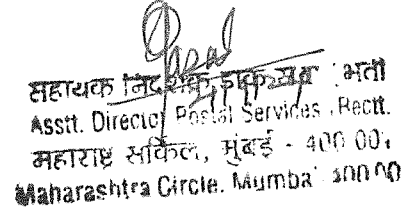 सहायक निदेशक डाक सेवा भर्ती
Asstt. Director Postal Services, Rectt.
महाराष्ट्र सर्किल, मुंबई - 400 001
Maharashtra Circle. Mumbai